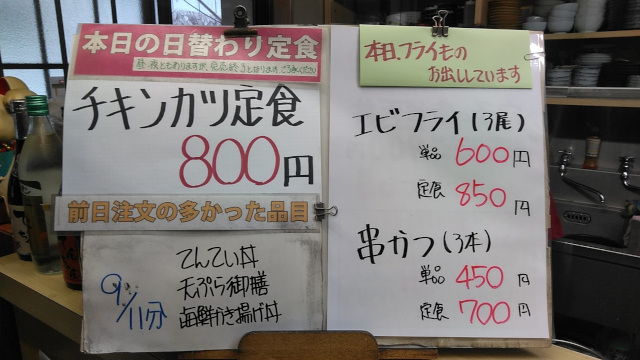 本日の日替わり定食
チキンカツ定食
800円
前日注文の多かった品目
9/11分
てんてい丼
天ぷら御膳
海鮮かき揚げ丼
本日、フライもの
お出ししています
エビフライ(3尾)
単品 600円
定食 850円
串かつ(3本)
単品 450円
定食 700円